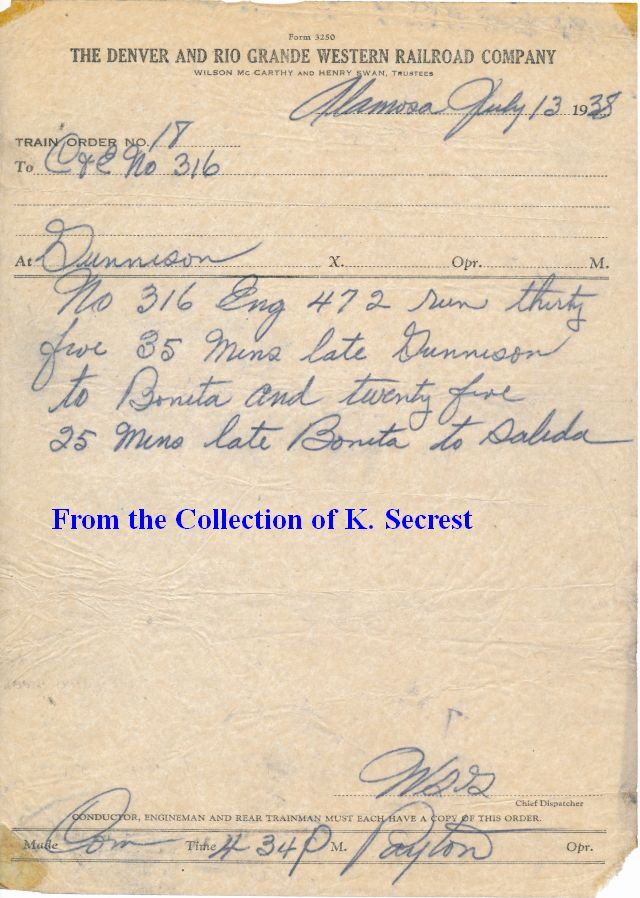 Form 3250
THE DENVER AND RIO GRANDE WESTERN RAILROAD COMPANY
WILSON Mc CARTHY AND HENRY SWAN, TRUSTEES
Alamosa July 13 1938
TRAIN ORDER NO. 18
To C&E No 316
At Gunnison X. Opr. M.
No 316 Eng 472 run thirty
five 35 Mins late Gunnison
to Bonita and twenty five
25 Mins late Bonita to Salida
From the Collection of K. Secrest
Chief Dispatcher
CONDUCTOR, ENGINEMAN AND REAR TRAINMAN MUST EACH HAVE A COPY OF THIS ORDER.
Made Com Time 4 34 P M. Payton Opr.